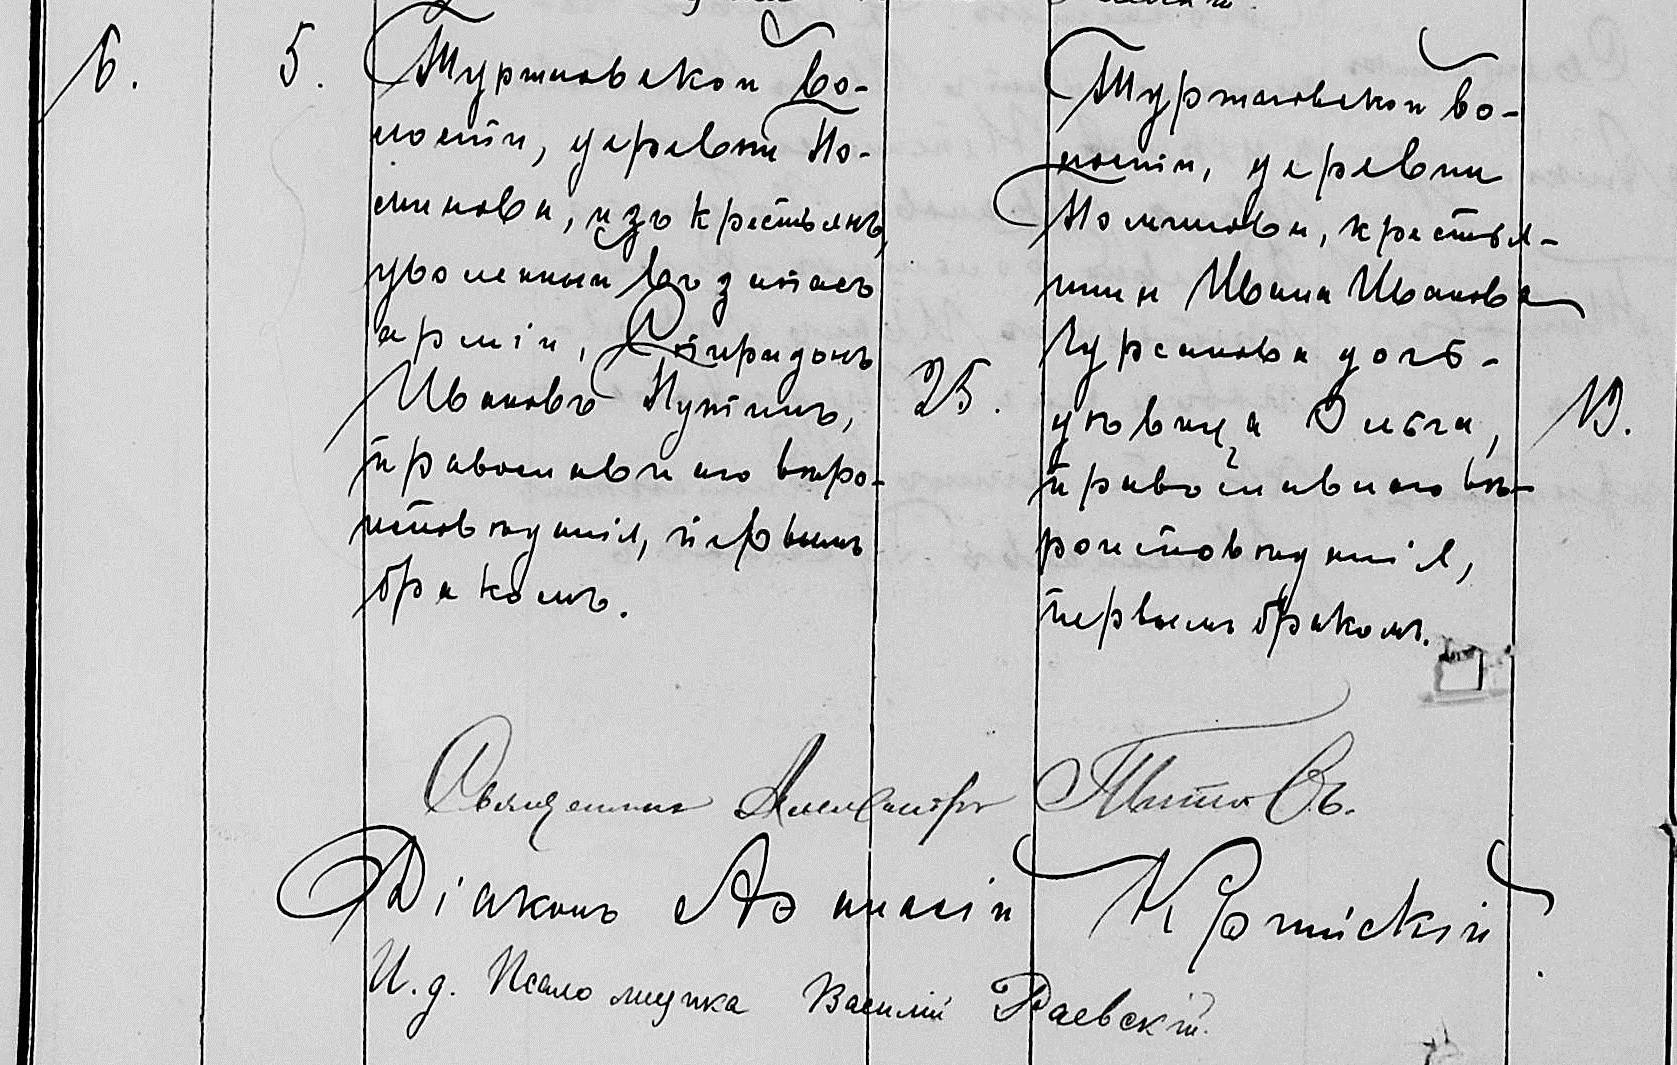 6.
5.
Тургиновской во-
лости, деревни По-
минова, изъ крестьянъ,
уволенный въ запасъ
арміи, Спиридонъ
Ивановъ Путинъ,
православнаго вѣро-
исповѣданія, первымъ
бракомъ.
25.
Тургиновской во-
лости, деревни
Поминова, крестья-
нина Ивана Иванова
Чурсанова дочь -
дѣвица Ольга,
православнаго вѣ-
роисповѣданія,
первымъ бракомъ.
19.
Священникъ Александръ Титовъ.
Діаконъ Аѳанасій
И. д. Псаломщика Василій Раевскій.